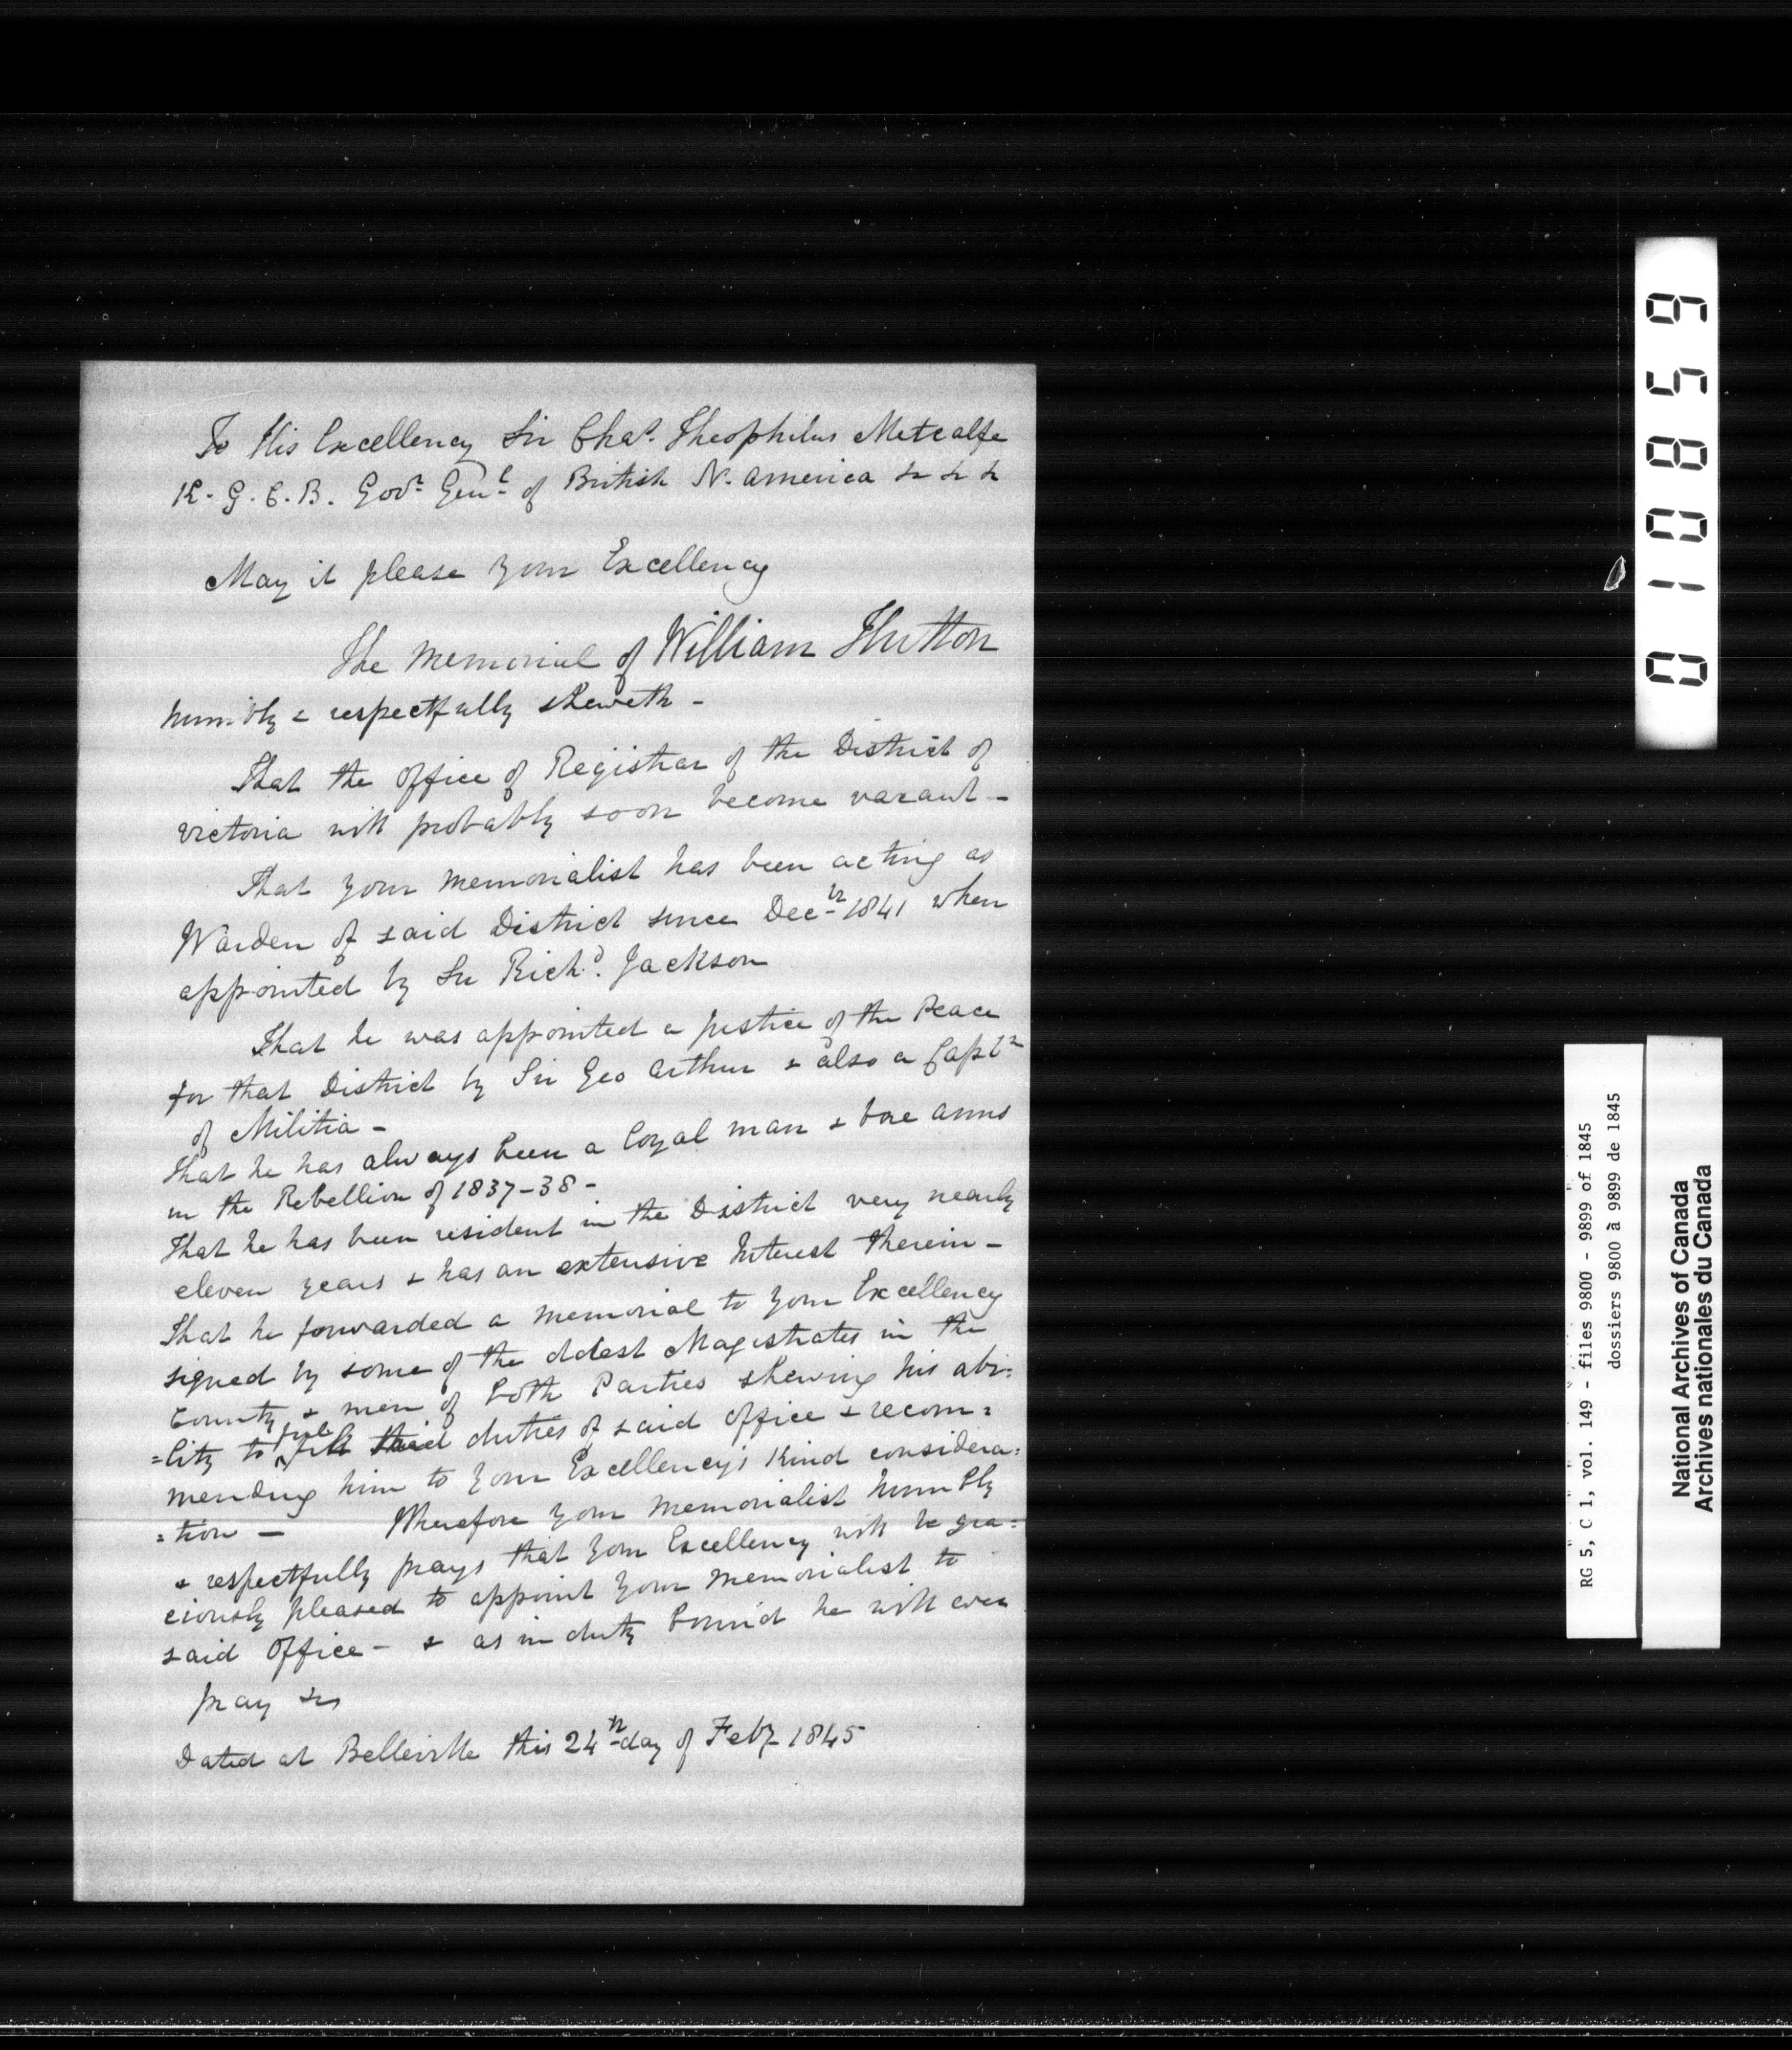 To His Excellency Sir Chas. Theophilus Metcalfe
K. G. C. B. Govr Genl of British N. America &c &c &c
May it please your Excellency
The Memorial of William Hutton
humbly & respectfully sheweth -
That the office of Registrar of the District of
Victoria will probably soon become vacant -
That your Memorialist has been acting as
Warden of said District since Decr 1841 when
appointed by Sir Richd. Jackson
That he was appointed a Justice of the Peace
for that District by Sir Geo Arthur & also a Captn
of Militia -
That he has always been a loyal man & bore arms
in the Rebellion of 1837-38 -
That he has been resident in the District very nearly
eleven years & has an extensive Interest therein -
That he forwarded a Memorial to your Excellency
signed by some of the oldest Magistrates in the
County & men of both Parties shewing his abi=
=lity to duties of said office & recom=
mending him to your Excellency's kind considera=
=tion - Wherefore your Memorialist humbly
& respectfully prays that your Excellency will be gra=
ciously pleased to appoint your Memorialist to
said Office - & as in duty bound he will ever
pray &c
Dated at Belleville this 24th day of Feby 1845
010859
RG 5, C 1, vol. 149 - files 9800 - 9899 of 1845
dossiers 9800 à 9899 de 1845
National Archives of Canada
Archives nationales du Canada